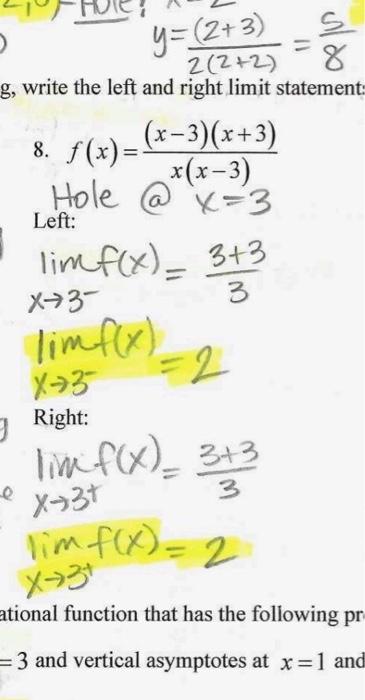 Hole!
y = (2+3) / 2(2+2) = 5/8
g, write the left and right limit statement
8. f(x) = (x−3)(x+3) / x(x−3)
Hole @ x=3
Left:
lim f(x) = 3+3 / 3
x→3⁻
lim f(x) = 2
x→3⁻
Right:
lim f(x) = 3+3 / 3
x→3⁺
lim f(x) = 2
x→3⁺
ational function that has the following pr
= 3 and vertical asymptotes at x = 1 and